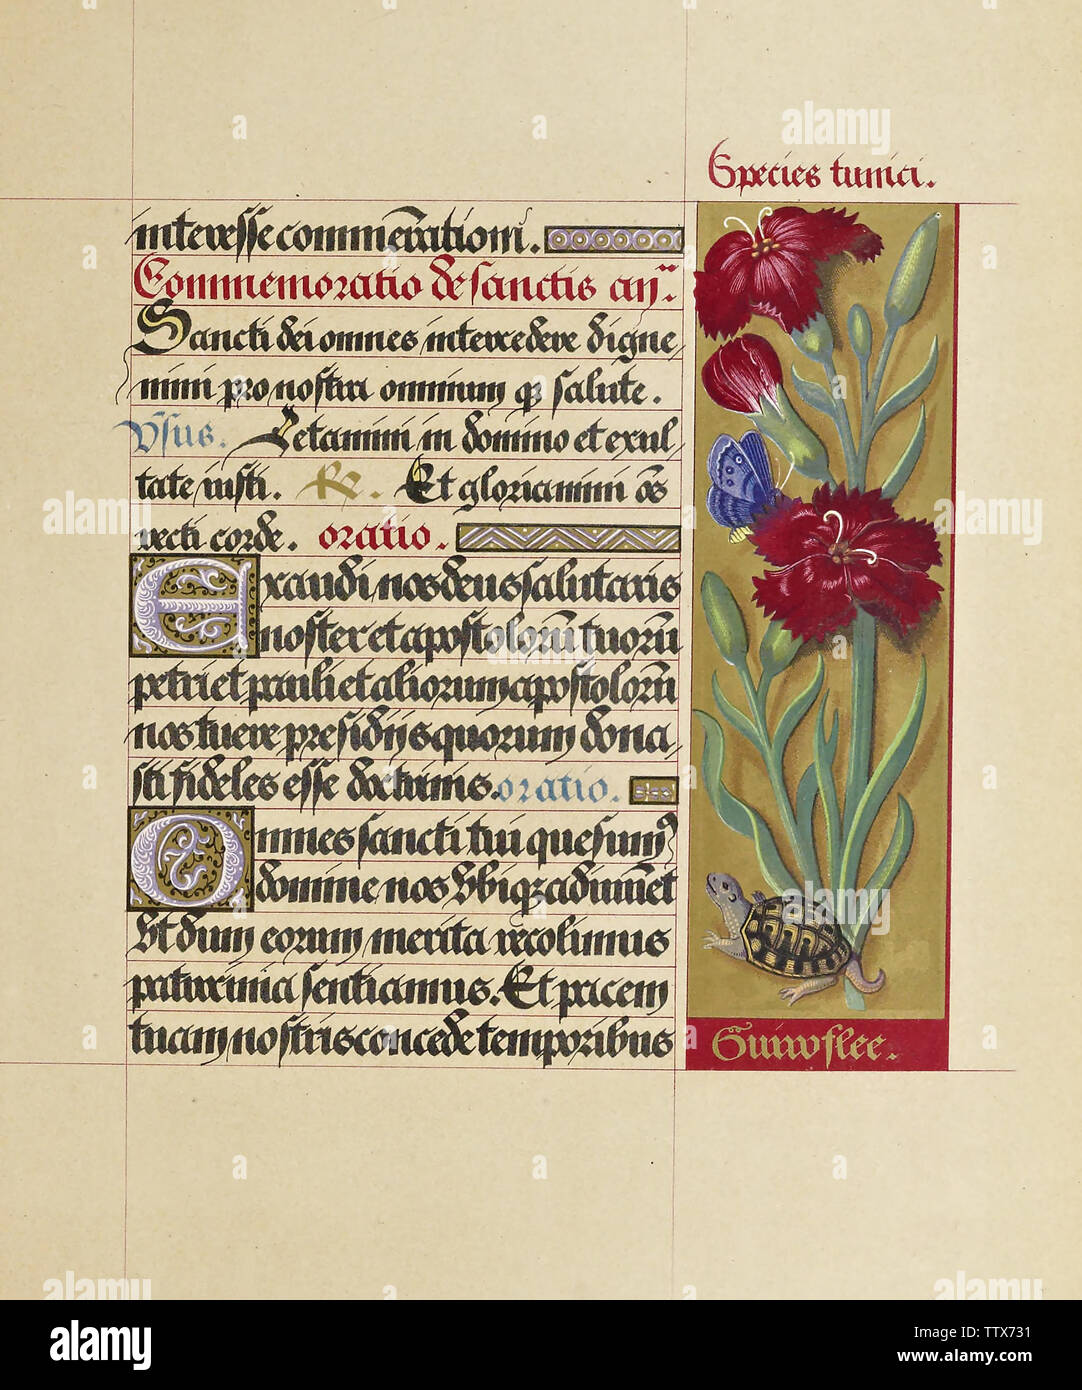 Species tunici.
interesse commemērationi.
Commemoratio de sanctis
Sancti dei omnes intercedere digne
mini pro nostra omnium qȝ salute.
Vsus. Letamini in domino et exul
tate iusti. Rz. Et gloriamini ōs
recti corde. oratio.
Exaudi nos deus salutaris
noster et apostolorū tuorū
petri et pauli et aliorum apostolorū
nos tuere presidijs quorum dona
sti fideles esse doctrinis. oratio.
Omnes sancti tui quesumꝰ
domine nos vbiqȝ adiuuēt
vt dum eorum merita recolimus
patrocinia sentiamus. Et pacem
tuam nostris concede temporibus
a alamy
alamy
Image ID: TTX731
www.alamy.com